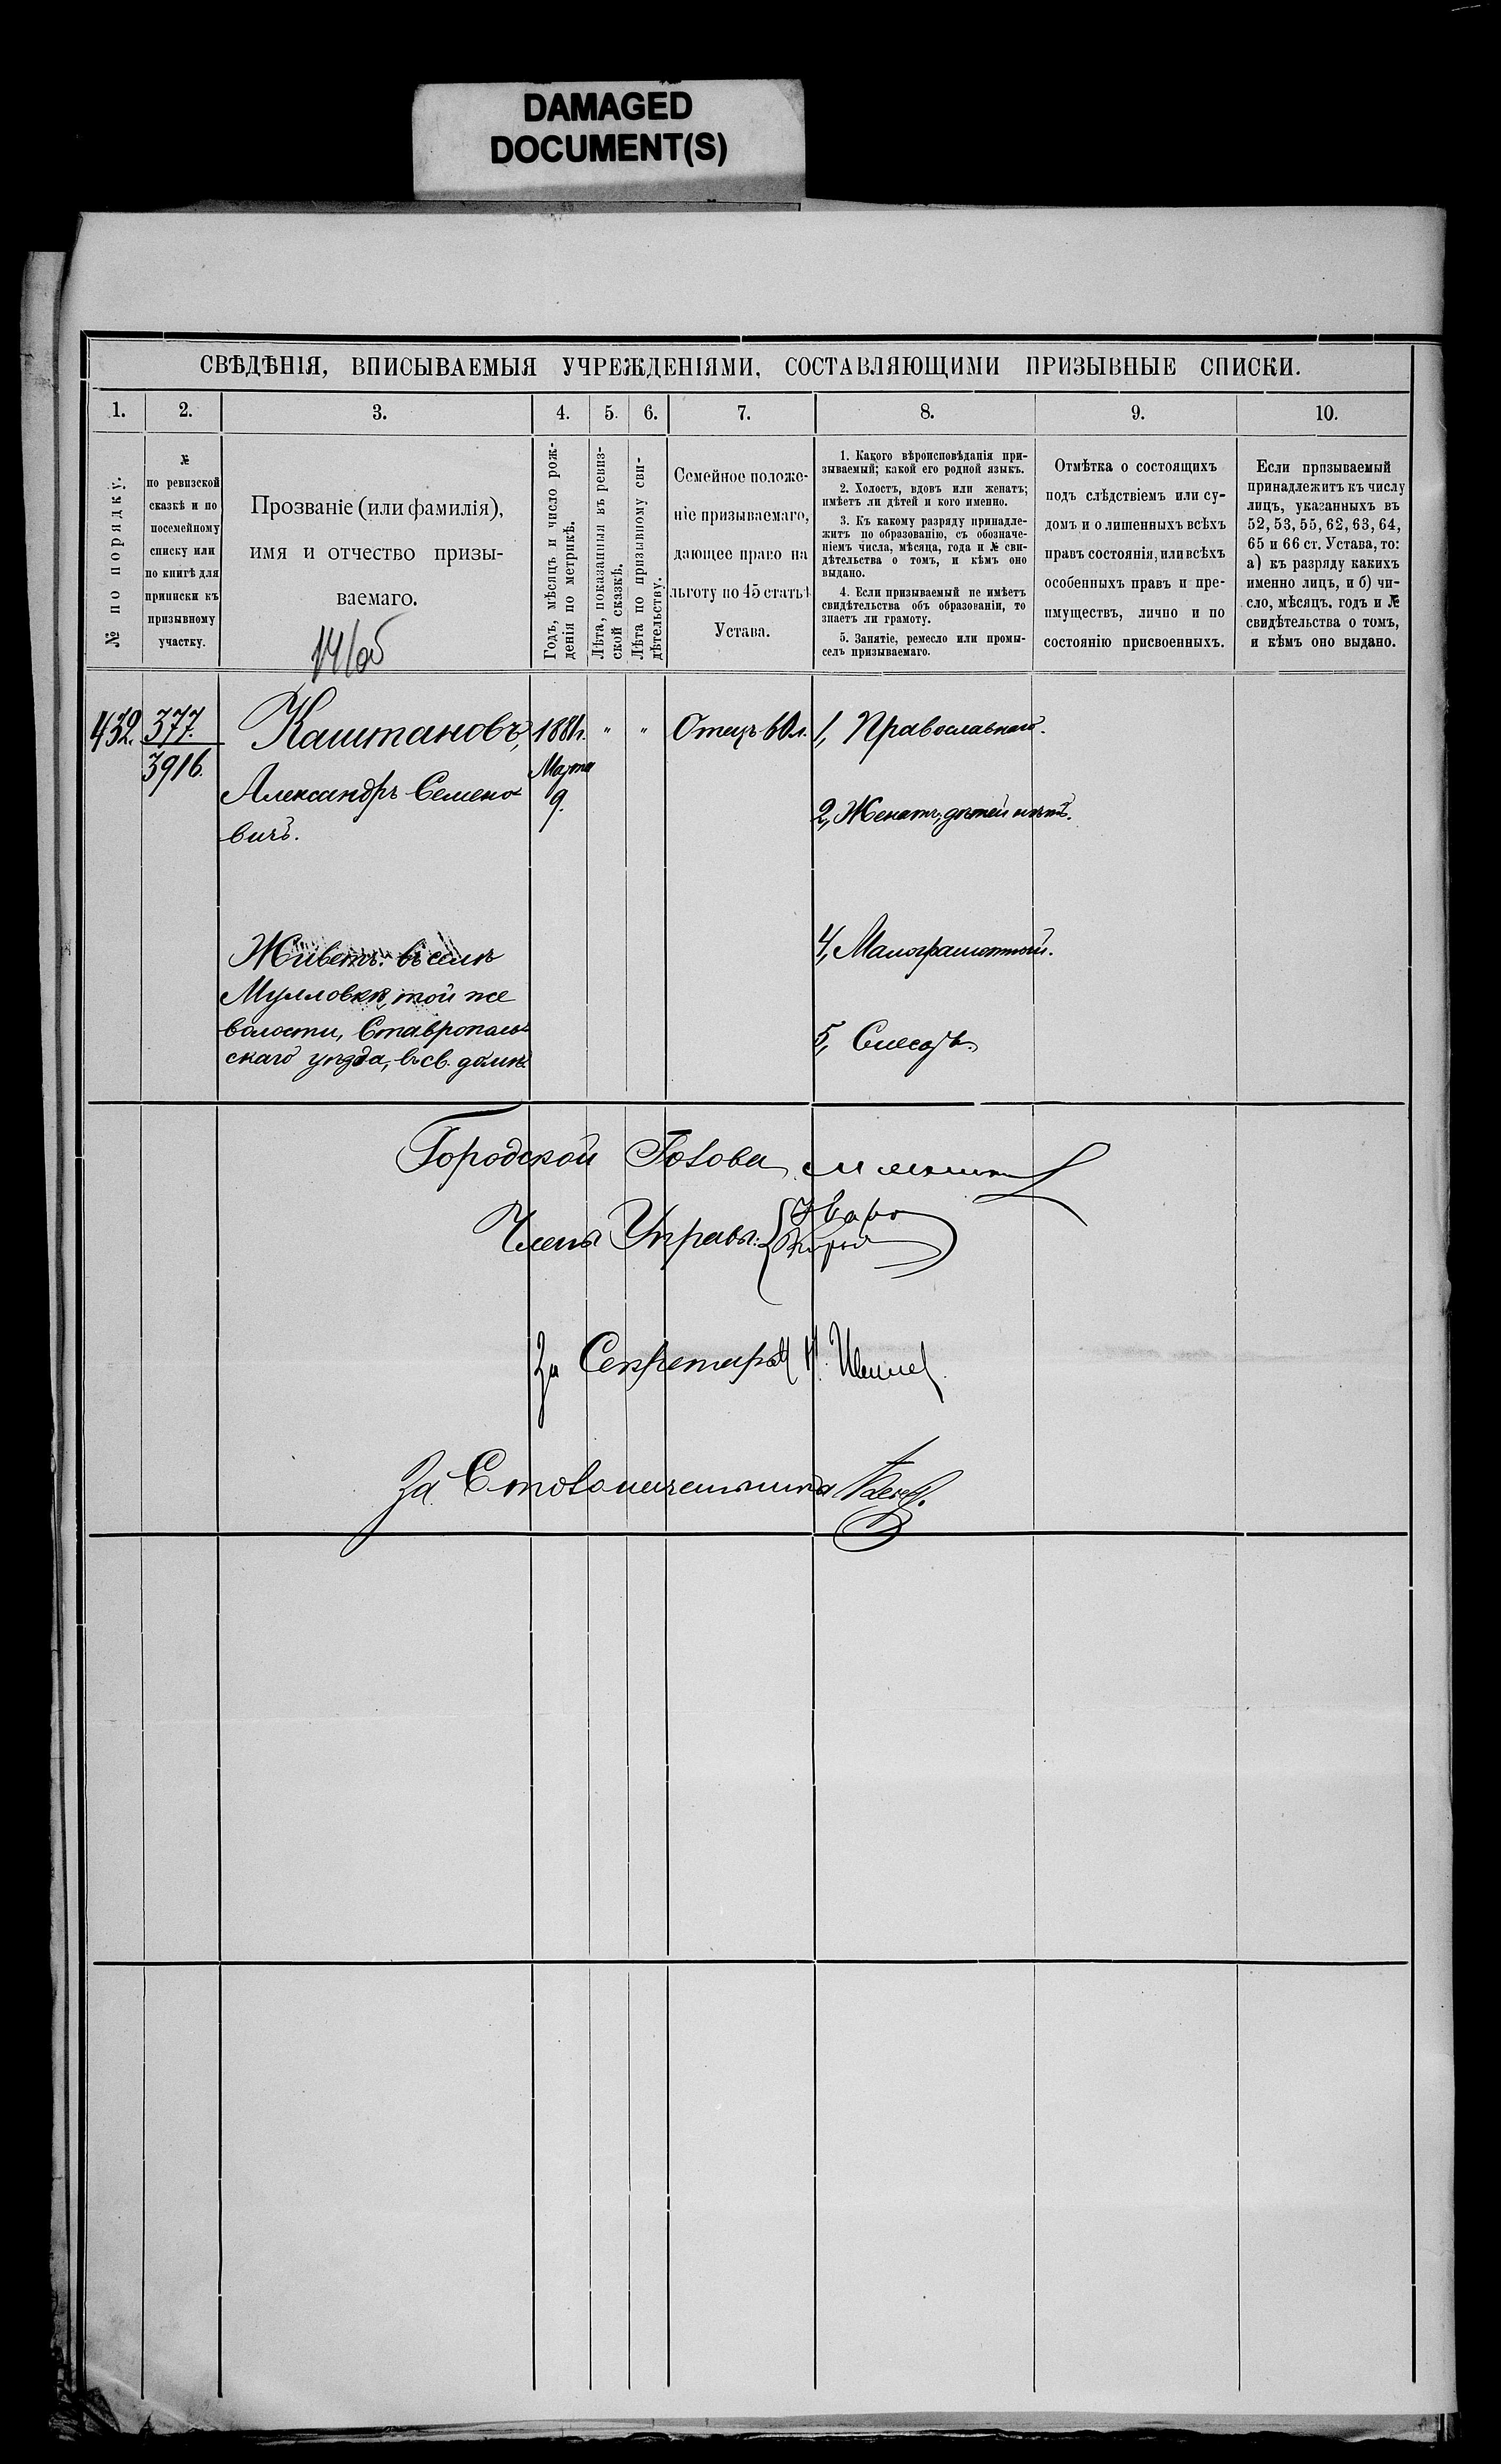 DAMAGED
DOCUMENT(S)
СВѢДѢНІЯ, ВПИСЫВАЕМЫЯ УЧРЕЖДЕНІЯМИ, СОСТАВЛЯЮЩИМИ ПРИЗЫВНЫЕ СПИСКИ.
1. 2. 3. 4. 5. 6. 7. 8. 9. 10.
№ по порядку.
№
по ревизской
сказкѣ и по
посемейному
списку или
по книгѣ для
приписки къ
призывному
участку.
Прозваніе (или фамилія),
имя и отчество призы-
ваемаго.
Годъ, мѣсяцъ и число рож-
денія по метрикѣ.
Лѣта, показанныя въ ревиз-
ской сказкѣ.
Лѣта по призывному сви-
дѣтельству.
Семейное положе-
ніе призываемаго,
дающее право на
льготу по 45 статьѣ
Устава.
1. Какого вѣроисповѣданія при-
зываемый; какой его родной языкъ.
2. Холостъ, вдовъ или женатъ;
имѣетъ ли дѣтей и кого именно.
3. Къ какому разряду принадле-
житъ по образованію, съ обозначе-
ніемъ числа, мѣсяца, года и № сви-
дѣтельства о томъ, и кѣмъ оно
выдано.
4. Если призываемый не имѣетъ
свидѣтельства объ образованіи, то
знаетъ ли грамоту.
5. Занятіе, ремесло или промы-
селъ призываемаго.
Отмѣтка о состоящихъ
подъ слѣдствіемъ или су-
домъ и о лишенныхъ всѣхъ
правъ состоянія, или всѣхъ
особенныхъ правъ и пре-
имуществъ, лично и по
состоянію присвоенныхъ.
Если призываемый
принадлежитъ къ числу
лицъ, указанныхъ въ
52, 53, 55, 62, 63, 64,
65 и 66 ст. Устава, то:
а) къ разряду какихъ
именно лицъ, и б) чи-
сло, мѣсяцъ, годъ и №
свидѣтельства о томъ,
и кѣмъ оно выдано.
432.
377.
3916.
Каштановъ,
Александръ Семено-
вичъ.
Живетъ: въ селѣ
Мулловкѣ, той же
волости, Ставрополь-
скаго уѣзда, въ св. домѣ.
1881г.
Марта
9.
" "
Отецъ 60 л.
1, Православнаго.
2, Женатъ, дѣтей нѣтъ.
4, Малограмотный.
5, Слесарь.
Городской Голова
Члены Управы:
За Секретаря
За Столоначальника